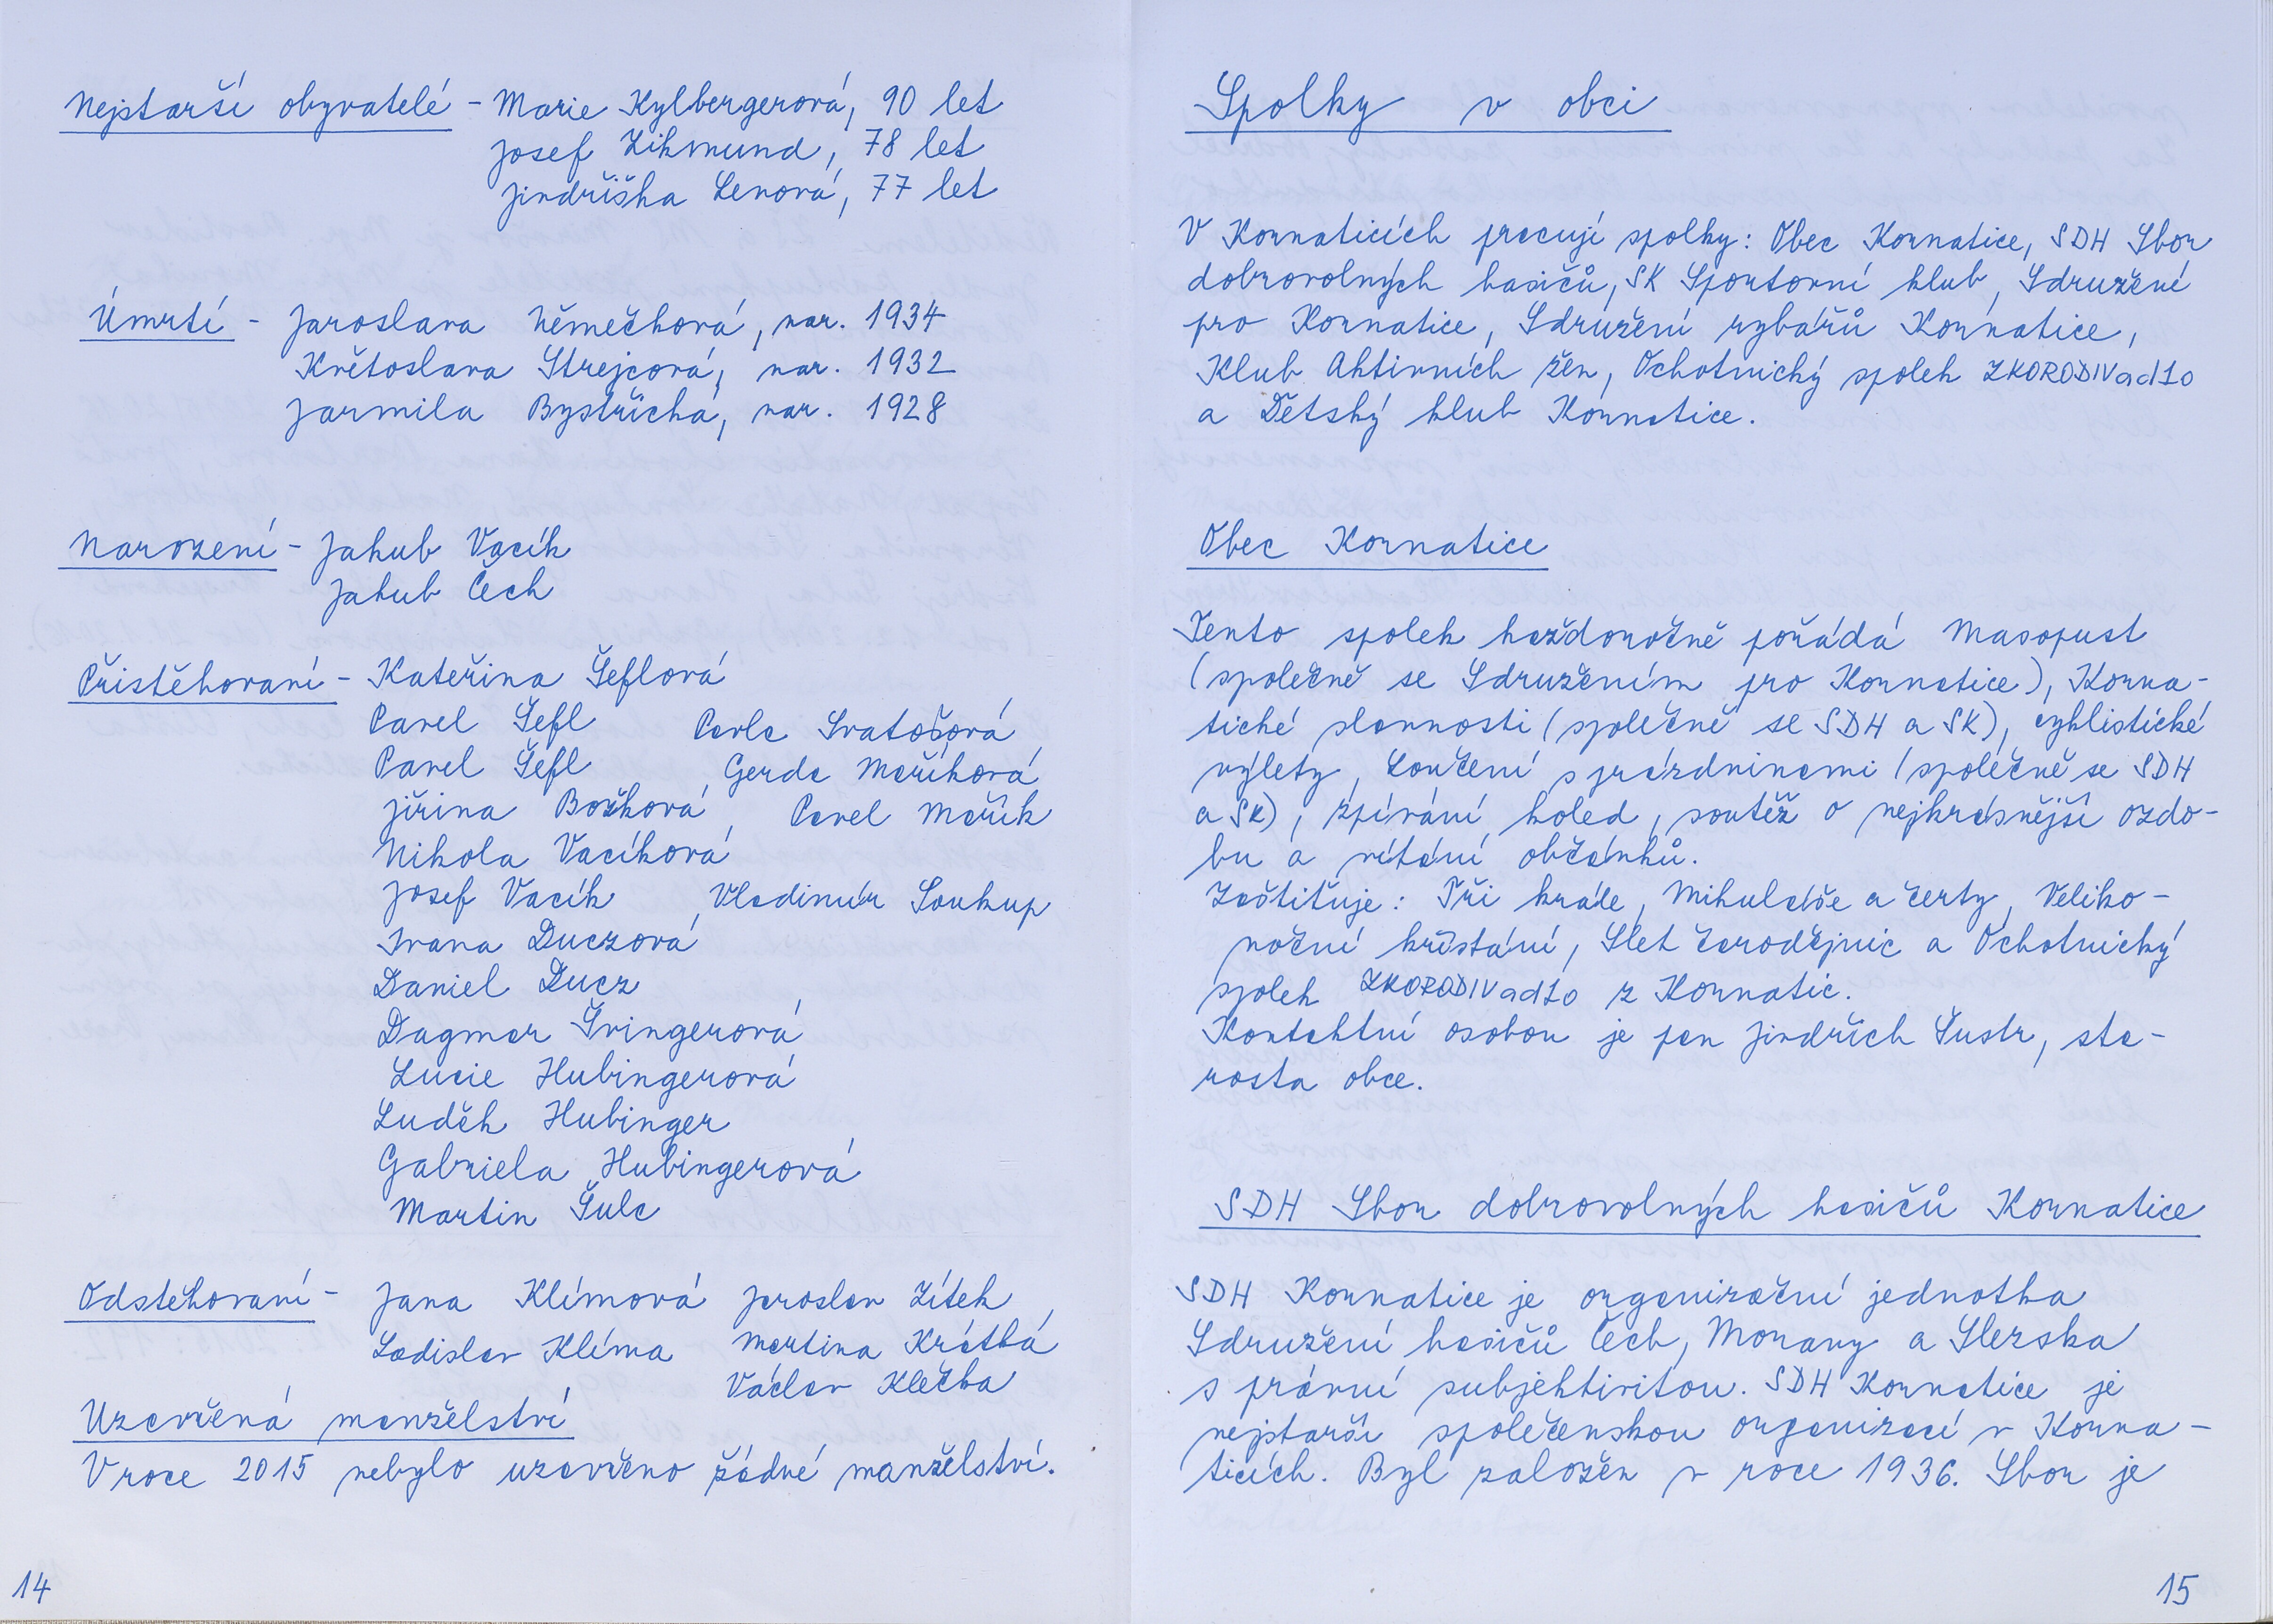 Nejstarší obyvatelé - Marie Kylbergerová, 90 let
Josef Zikmund, 78 let
Jindřiška Lenová, 77 let
Úmrtí - Jaroslava Němečková, nar. 1934
Květoslava Strejcová, nar. 1932
Jarmila Bystřická, nar. 1928
Narození - Jakub Vacík
Jakub Čech
Přistěhovaní - Kateřina Šeflová
Pavel Šefl Perla Svatošová
Pavel Šefl Gerda Maříková
Jiřina Božková, Pavel Mařík
Nikola Vacíková
Josef Vacík, Vladimír Soukup
Ivana Duczová
Daniel Ducz
Dagmar Švingerová
Lucie Hubingerová
Luděk Hubinger
Gabriela Hubingerová
Martin Šulc
Odstěhovaní - Jana Klímová Jaroslav Zítek,
Ladislav Klíma Martina Krátká
Václav Klečka
Uzavřená manželství
V roce 2015 nebylo uzavřeno žádné manželství.
14
Spolky v obci
V Kornaticích pracují spolky: Obec Kornatice, SDH Sbor
dobrovolných hasičů, SK Sportovní klub, Sdružení
pro Kornatice, Sdružení rybářů Kornatice,
Klub Aktivních žen, Ochotnický spolek ZKORODIVadlo
a Dětský klub Kornatice.
Obec Kornatice
Tento spolek každoročně pořádá Masopust
(společně se Sdružením pro Kornatice), Korna-
tické slavnosti (společně se SDH a SK), cyklistické
výlety, Loučení s prázdninami (společně se SDH
a SK), zpívání koled, soutěž o nejkrásnější ozdo-
bu a vítání občánků.
Zaštiťuje: Tři krále, Mikuláše a čerty, Veliko-
noční hrkstání, Slet čarodějnic a Ochotnický
spolek ZKORODIVadlo z Kornatic.
Kontaktní osobou je pan Jindřich Šustr, sta-
rosta obce.
SDH Sbor dobrovolných hasičů Kornatice
SDH Kornatice je organizační jednotka
Sdružení hasičů Čech, Moravy a Slezska
s právní subjektivitou. SDH Kornatice je
nejstarší společenskou organizací v Korna-
ticích. Byl založen v roce 1936. Sbor je
15